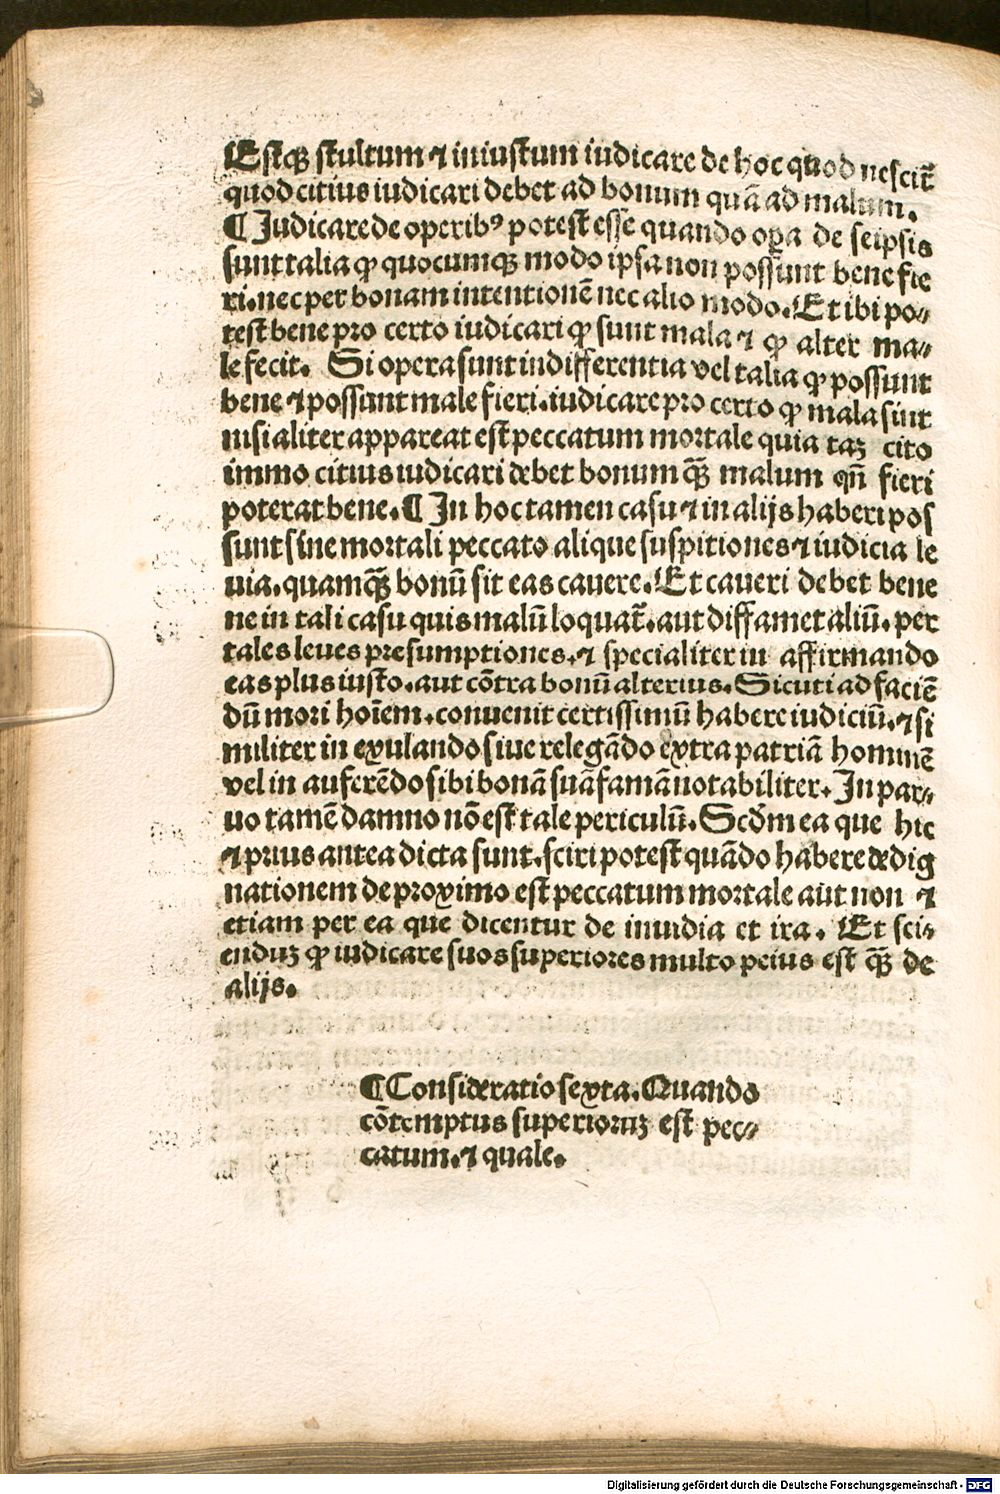 Estqꝫ stultum ⁊ iniustum iudicare de hoc quod nescit̄
quod citius iudicari debet ad bonum quā ad malum.
¶ Judicare de operibꝰ potest esse quando oꝑa de seipsis
sunt talia ꝙ quocumqꝫ modo ipsa non possunt bene fie
ri. nec per bonam intentionē nec alio modo. Et ibi po⸗
test bene pro certo iudicari ꝙ sunt mala ⁊ ꝙ alter ma⸗
le fecit. Si opera sunt indifferentia vel talia ꝙ possunt
bene ⁊ possunt male fieri. iudicare pro certo ꝙ mala sint
nisi aliter appareat est peccatum mortale quia taꝫ cito
immo citius iudicari debet bonum qꝫ̄ malum qn̄ fieri
poterat bene. ¶ In hoc tamen casu ⁊ in alijs haberi pos
sunt sine mortali peccato alique suspitiones ⁊ iudicia le
uia. quamqꝫ̄ bonū sit eas cauere. Et caueri debet bene
ne in tali casu quis malū loquat̄. aut diffamet aliū. per
tales leues presumptiones. ⁊ specialiter in affirmando
eas plus iusto. aut cōtra bonū alterius. Sicuti ad faciē
dū mori hoīem. conuenit certissimū habere iudiciū. ⁊ si
militer in exulando siue relegādo extra patriā hominē
vel in auferēdo sibi bonā suā famā notabiliter. In par⸗
uo tamē damno nō est tale periculū. Scd̄m ea que hic
⁊ prius antea dicta sunt. sciri potest quādo habere dedig
nationem de proximo est peccatum mortale aut non ⁊
etiam per ea que dicentur de inuidia et ira. Et sci⸗
enduꝫ ꝙ iudicare suos superiores multo peius est qꝫ̄ de
alijs.
¶ Consideratio sexta. Quando
cōtemptus superioruꝫ est pec⸗
catum. ⁊ quale.
Digitalisierung gefördert durch die Deutsche Forschungsgemeinschaft - DFG